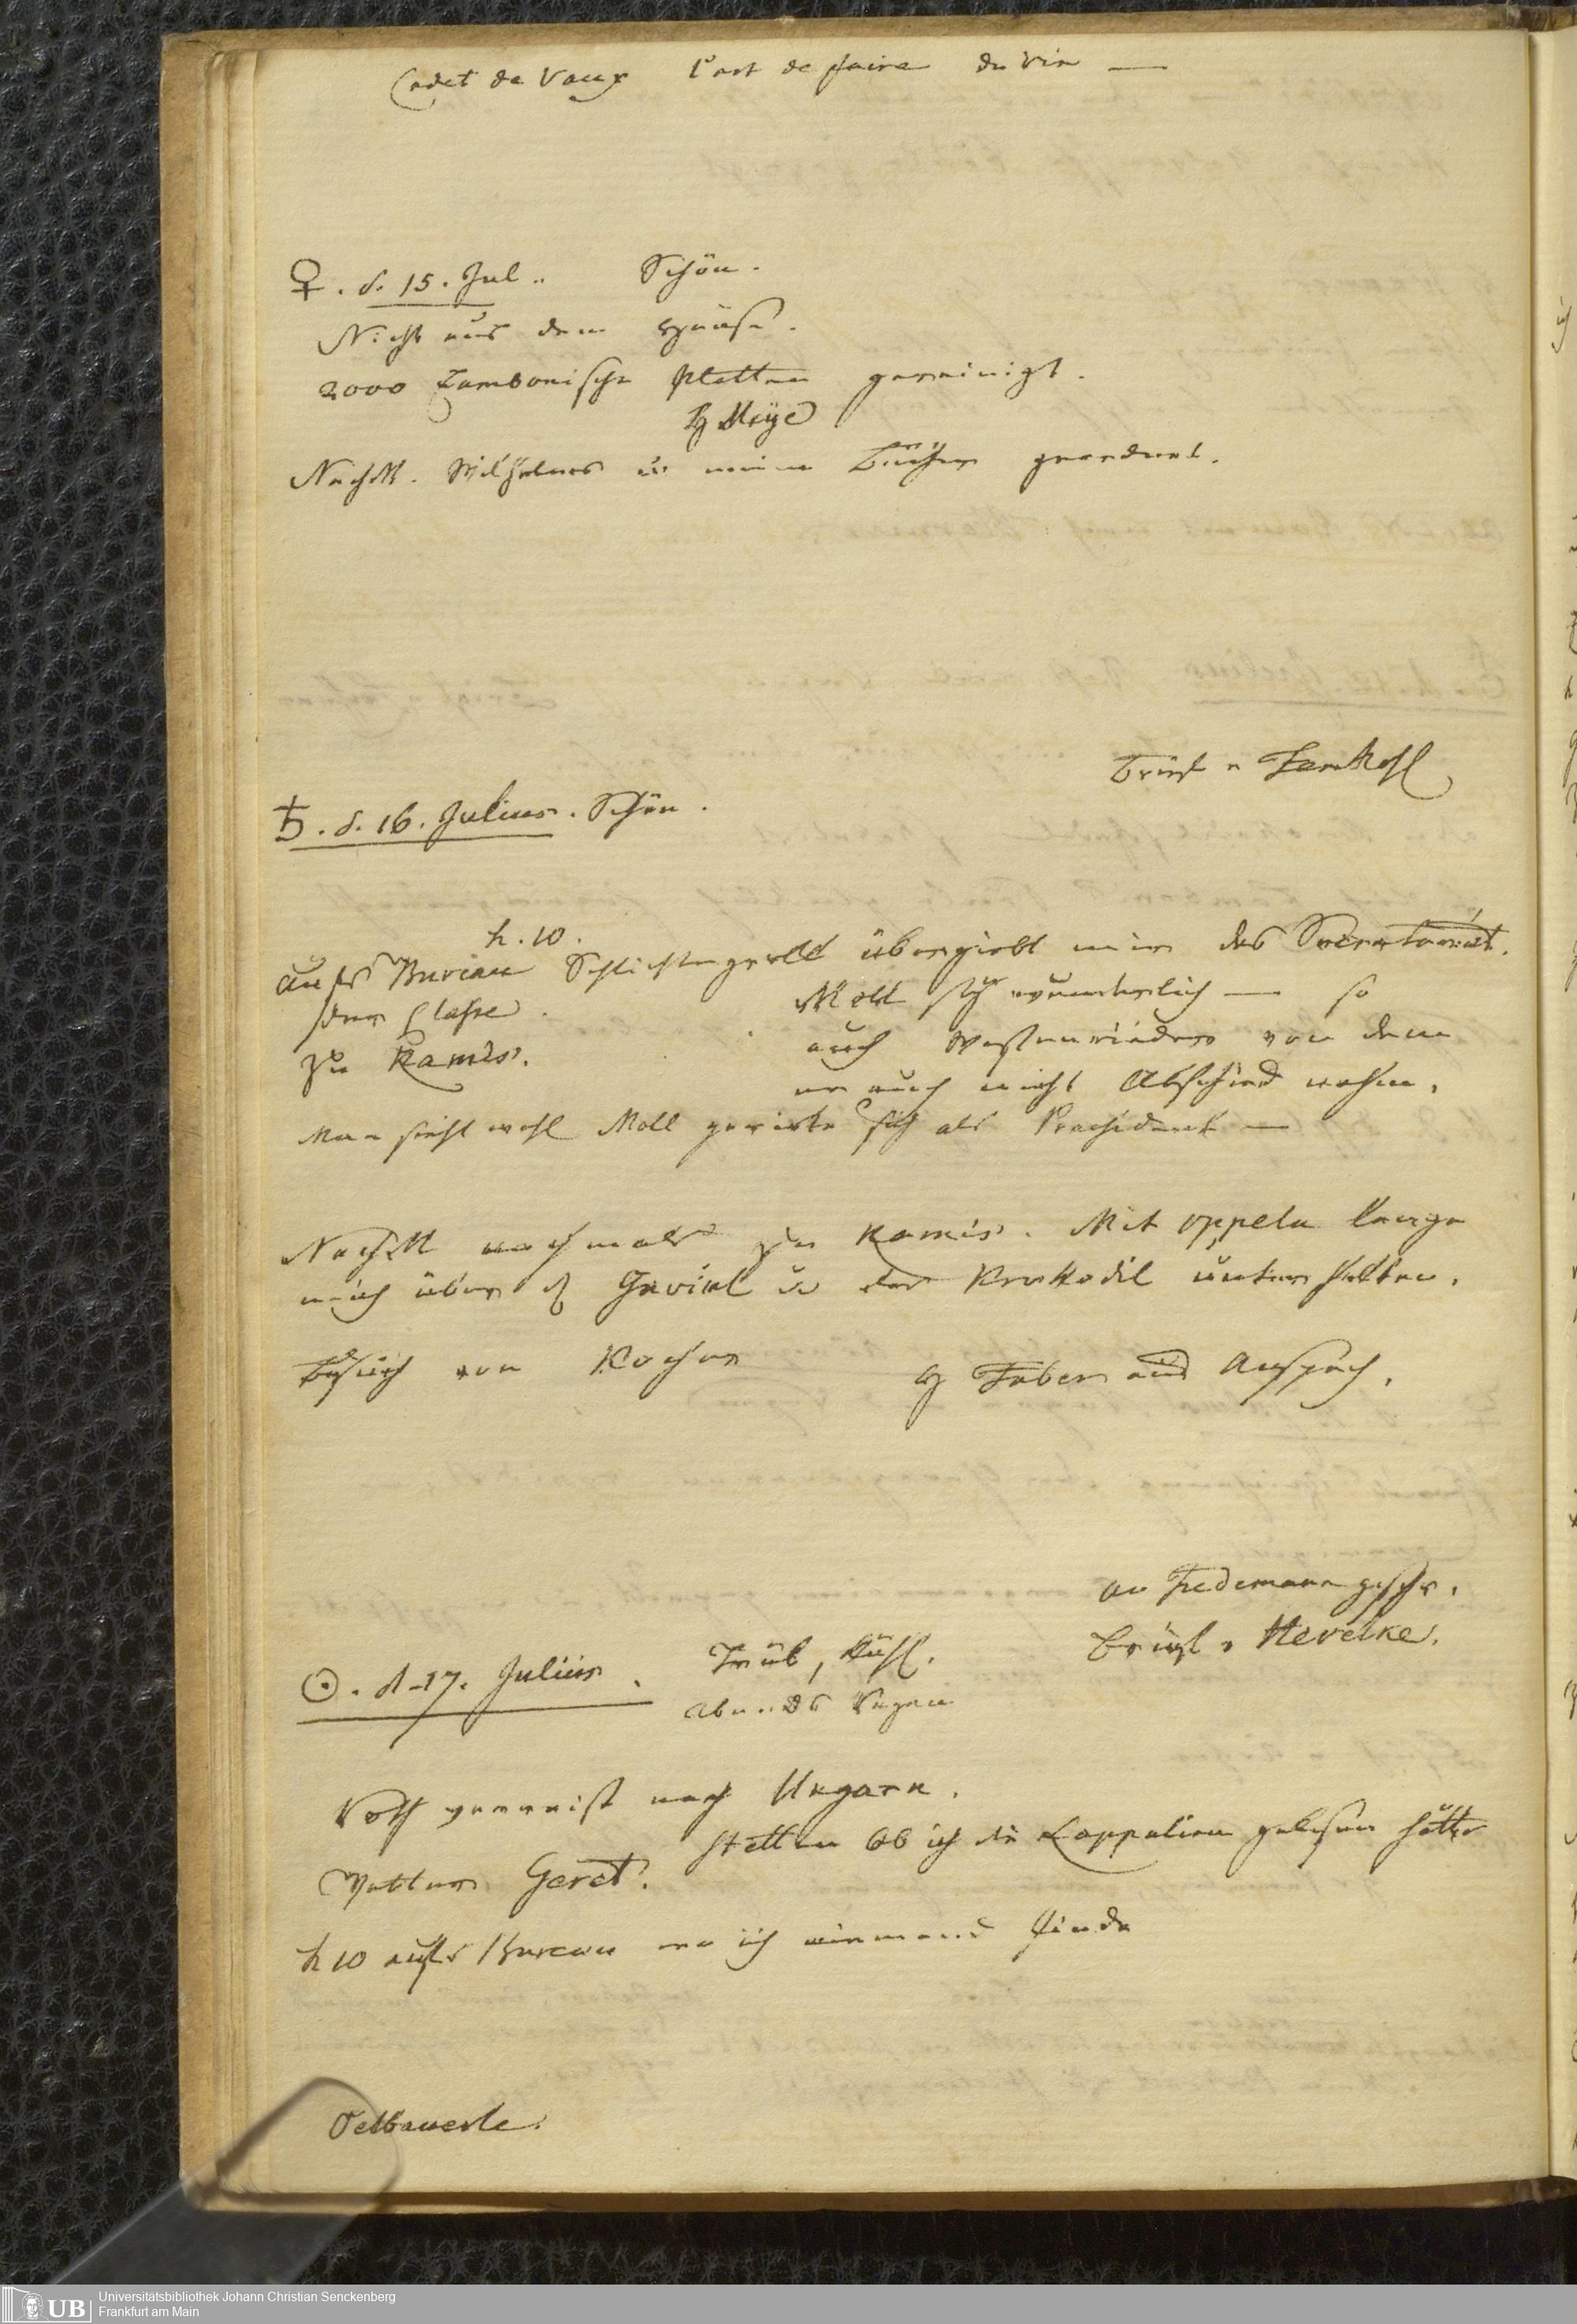 Cadet de Vaux l'art de faire du vin —
♀. d. 15. Jul.. Schön.
Nicht aus dem Hause.
2000 Zambonische Platten gereinigt.
NachM. Wilhelms u. meine Bücher geordnet.
Brief v
♄. d. 16. Julius. Schön.
h. 10.
aufs Bureau Schlichtegroll übergiebt mir das Secretariat
der Classe.
Moll sehr wunderlich — so
zu Ramis.
auch Westenrieder von dem
er auch nicht Abschied nahm.
Man sieht wohl Moll gerirte sich als Praesident —
NachM nochmals zu Ramis. Mit Oppeln lange
mich über d Gavial u das Krokodil unterhalten.
Besuch von Kocher
H Faber aus Anspach.
an Tiedemann geschr.
Brief v Hevelke.
☉. d. 17. Julius.
Trüb, kühl.
Abends Regen
Roth verreist nach Ungarn.
Vetter Geret.
ob ich die Lappalien gelesen hätte
h 10 aufs Bureau wo ich niemand finde
Oelbauerle.
Universitätsbibliothek Johann Christian Senckenberg
Frankfurt am Main
UB